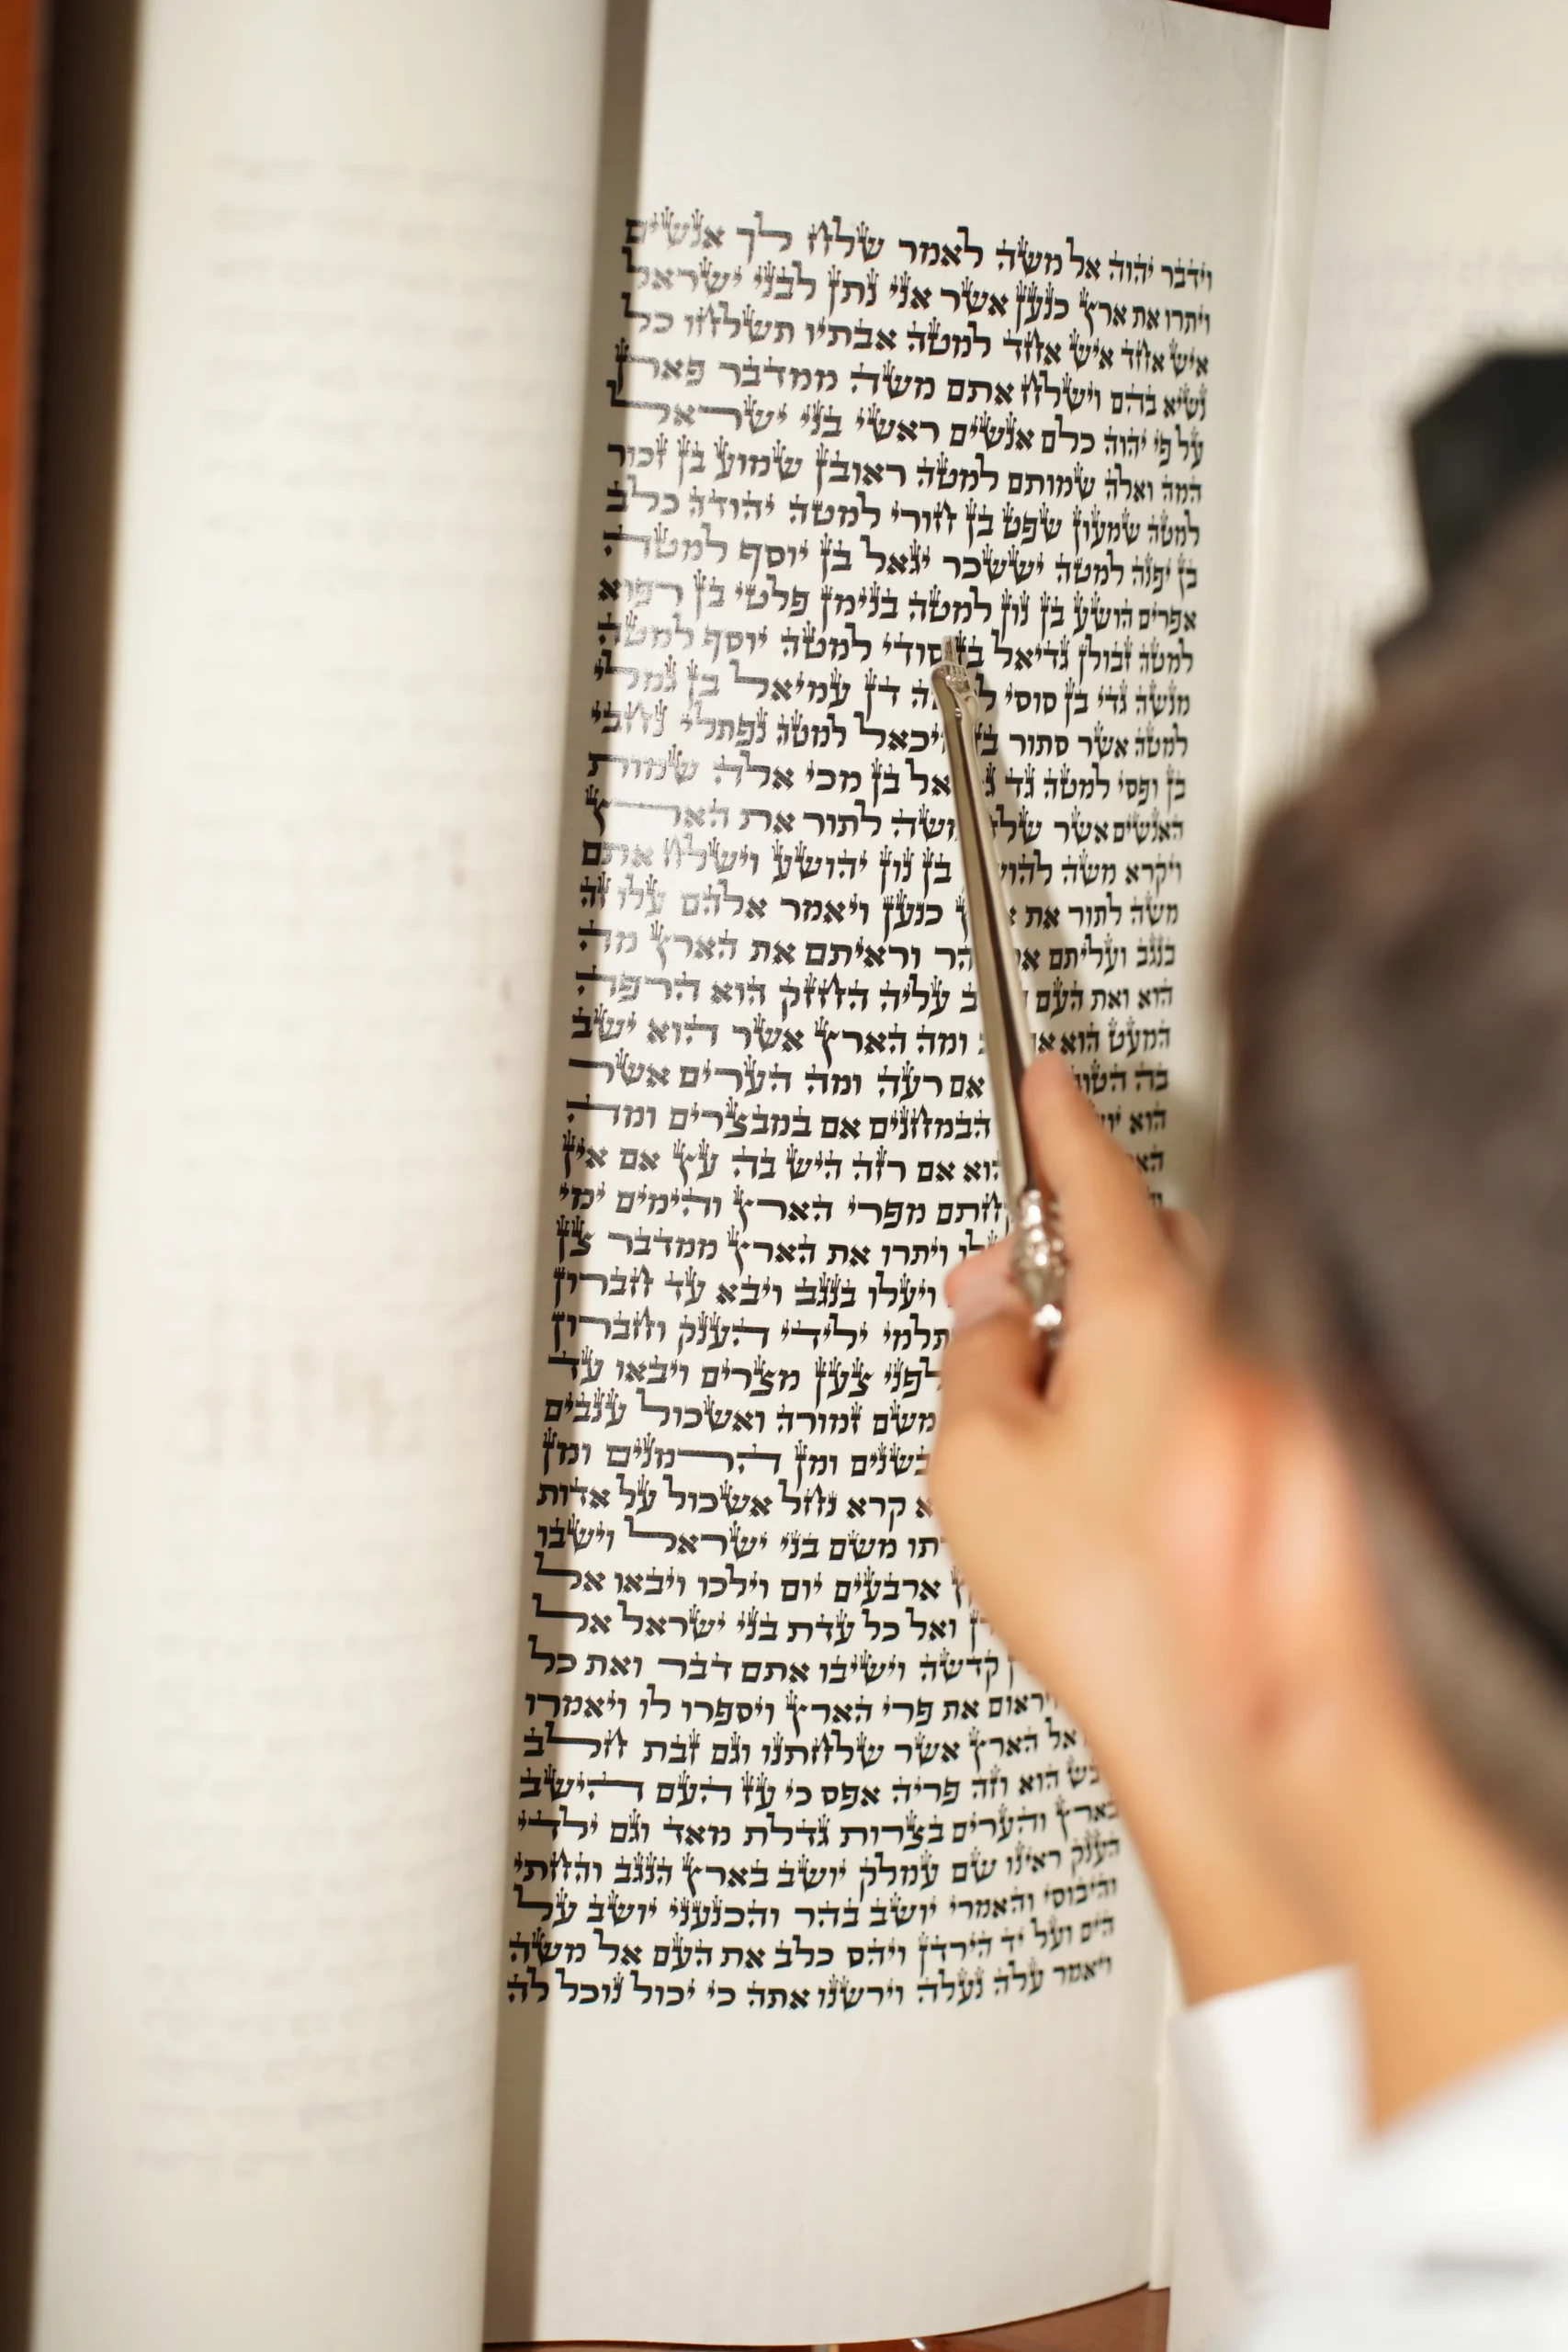 וידבר יהוה אל משה לאמר שלח לך אנשים
ויתרו את ארץ כנען אשר אני נתן לבני ישראל
איש אחד איש אחד למטה אבתיו תשלחו כל
נשיא בהם וישלח אתם משה ממדבר פארן
על פי יהוה כלם אנשים ראשי בני ישראל
המה ואלה שמותם למטה ראובן שמוע בן זכור
למטה שמעון שפט בן חורי למטה יהודה כלב
בן יפנה למטה יששכר יגאל בן יוסף למטה
אפרים הושע בן נון למטה בנימן פלטי בן רפוא
למטה זבולן גדיאל בן סודי למטה יוסף למטה
מנשה גדי בן סוסי דן עמיאל בן גמלי
למטה אשר סתור בן למטה נפתלי נחבי
בן ופסי למטה גד בן מכי אלה שמות
האנשים אשר משה לתור את הארץ
ויקרא משה בן נון יהושע וישלח אתם
משה לתור את כנען ויאמר אלהם עלו זה
בנגב ועליתם וראיתם את הארץ מה
הוא ואת העם עליה החזק הוא הרפה
המעט הוא ומה הארץ אשר הוא ישב
בה אם רעה ומה הערים אשר
הוא הבמחנים אם במבצרים ומה
אם רזה היש בה עץ אם אין
מפרי הארץ והימים ימי
ויתרו את הארץ ממדבר צן
ויעלו בנגב ויבא עד חברון
ילידי הענק וחברון
לפני צען מצרים ויבאו עד
משם זמורה ואשכול ענבים
ומן הרמנים ומן
קרא נחל אשכול על אדות
משם בני ישראל וישבו
ארבעים יום וילכו ויבאו אל
ואל כל עדת בני ישראל אל
קדשה וישיבו אתם דבר ואת כל
את פרי הארץ ויספרו לו ויאמרו
אל הארץ אשר שלחתנו וגם זבת חלב
הוא וזה פריה אפס כי עז העם הישב
בארץ והערים בצרות גדלת מאד וגם ילדי
הענק ראינו שם עמלק יושב בארץ הנגב והחתי
והיבוסי והאמרי יושב בהר והכנעני יושב על
הים ועל יד הירדן ויהס כלב את העם אל משה
ויאמר עלה נעלה וירשנו אתה כי יכול נוכל לה